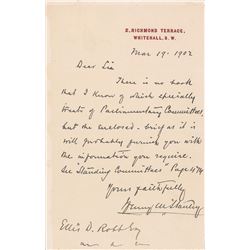 2, RICHMOND TERRACE,
WHITEHALL, S. W.
Mar 19. 1902
Dear Sir
There is no book
that I know of which specially
treats of Parliamentary Committees,
but the enclosed - brief as it is
will probably furnish you with
the information you require.
See Standing Committees Page
Yours faithfully
Henry M Stanley
Ellis D. Robb Esq